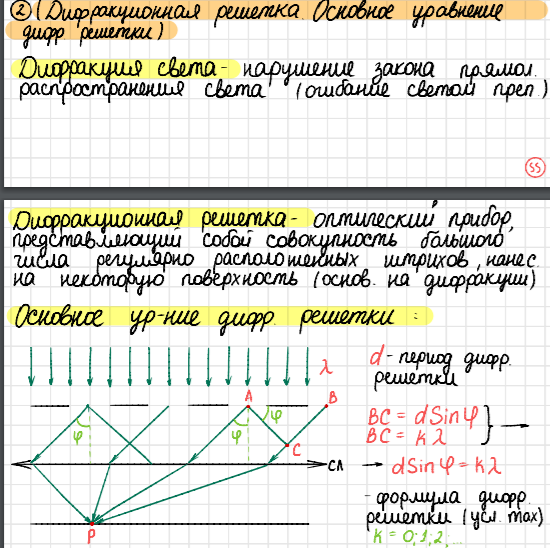 ② (Дифракционная решетка. Основное уравнение
дифр решетки)
Дифракция света - нарушение закона прямол.
распространения света (огибание светом преп.)
55
Дифракционная решетка - оптический прибор,
представляющий собой совокупность большого
числа регулярно расположенных штрихов, нанес.
на некоторую поверхность (основ. на дифракции)
Основное ур-ние дифр. решетки:
λ
A
B
φ
φ
φ
C
СЛ
P
d - период дифр.
решетки
BC = d Sin φ
BC = k λ
→ d Sin φ = k λ
- формула дифр.
решетки (усл. max)
k = 0; 1; 2; ...